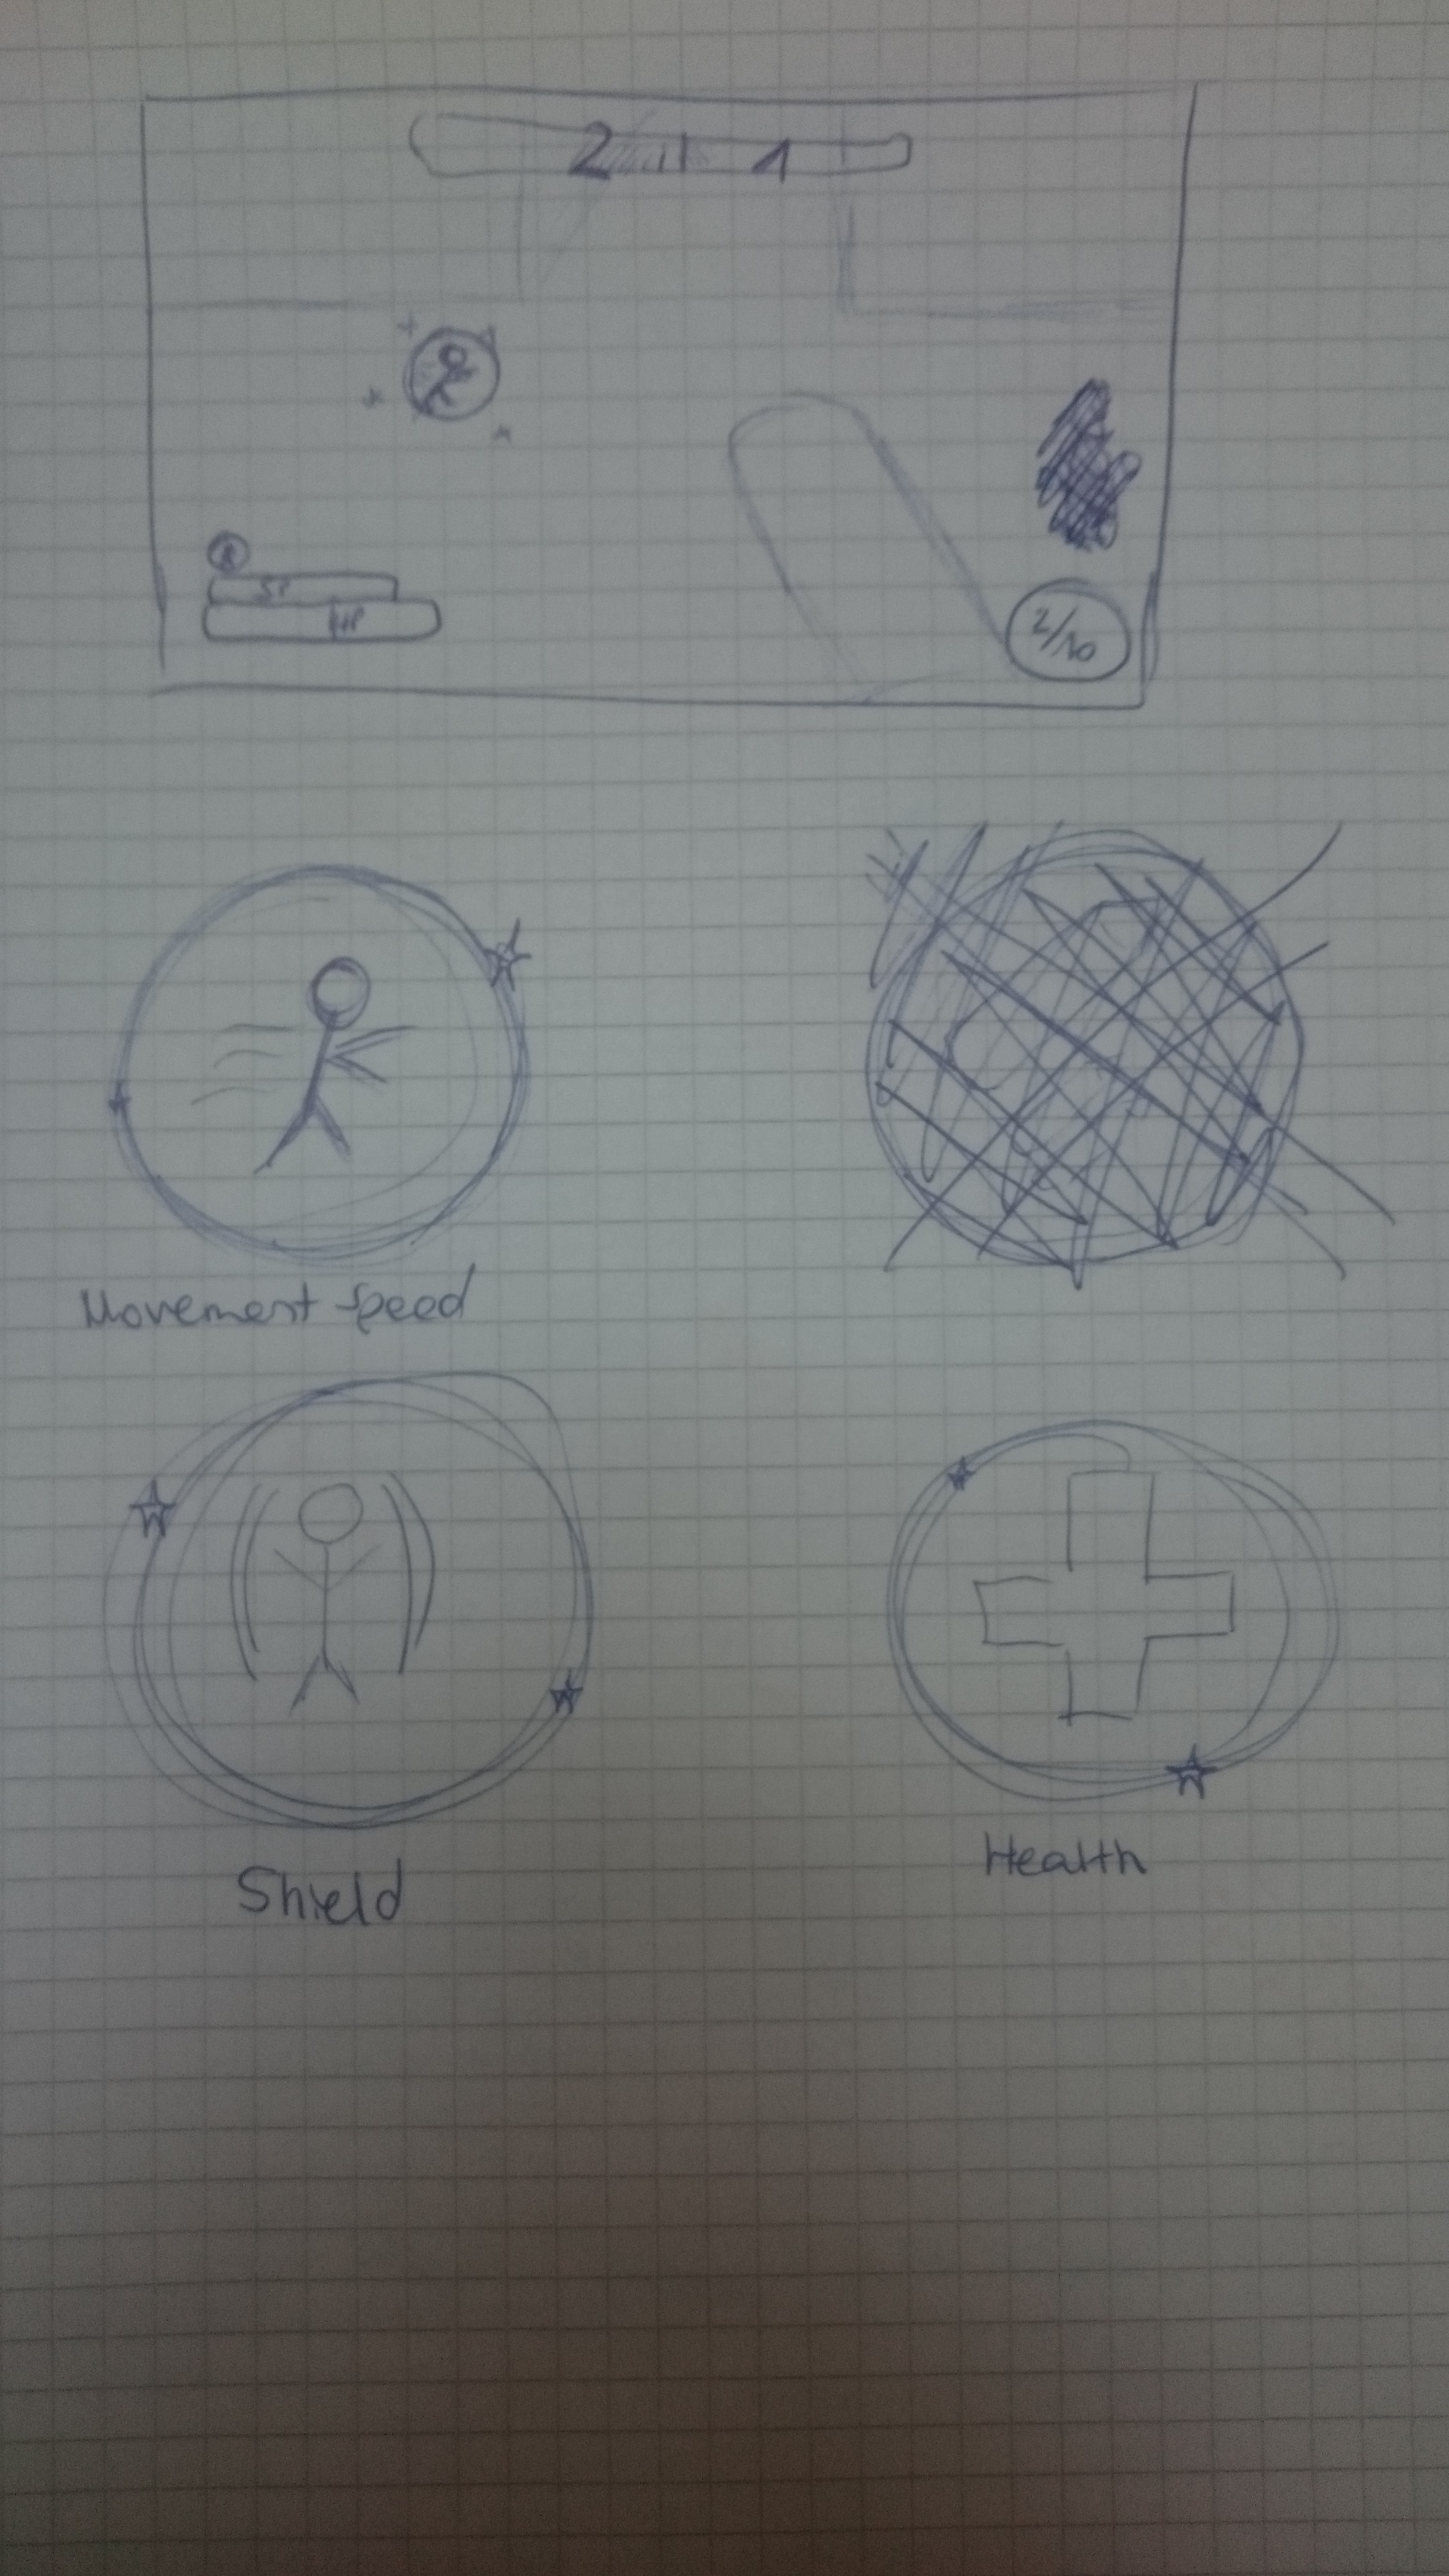 2 1
HP
2/10
Movement speed
Shield
Health